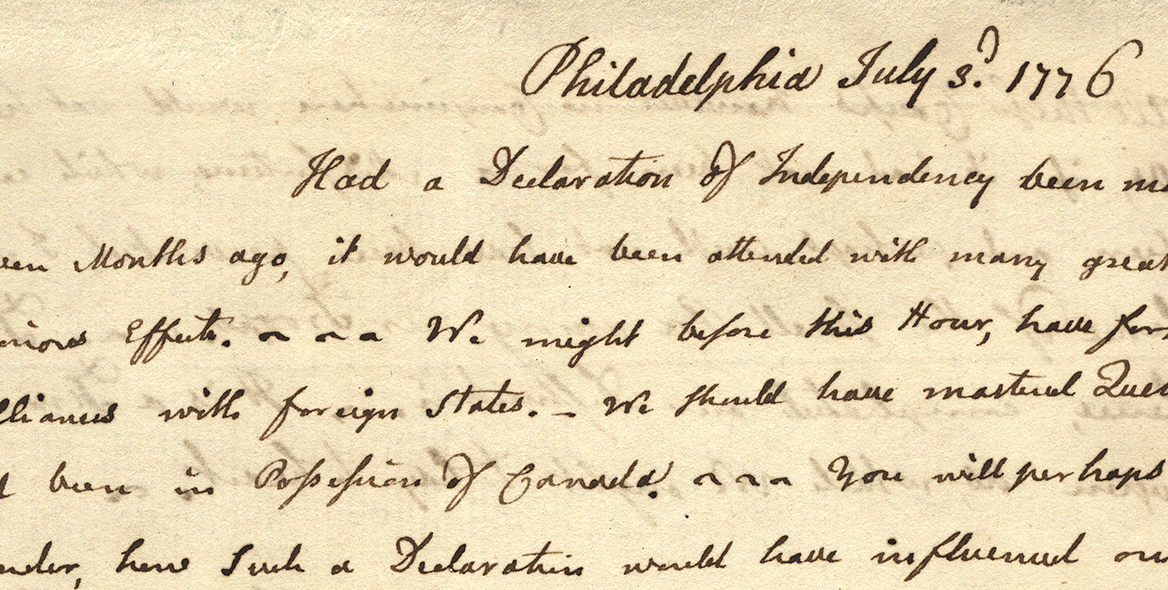 Philadelphia July 3.d 1776
Had a Declaration of Independency been ma
ven Months ago, it would have been attended with many great
rious Effects. ~ ~ ~ We might before this Hour, have for
lliances with foreign States. – We should have mastered Que
d been in Possession of Canada. ~ ~ ~ You will perhaps
nder, how Such a Declaration would have influenced ou